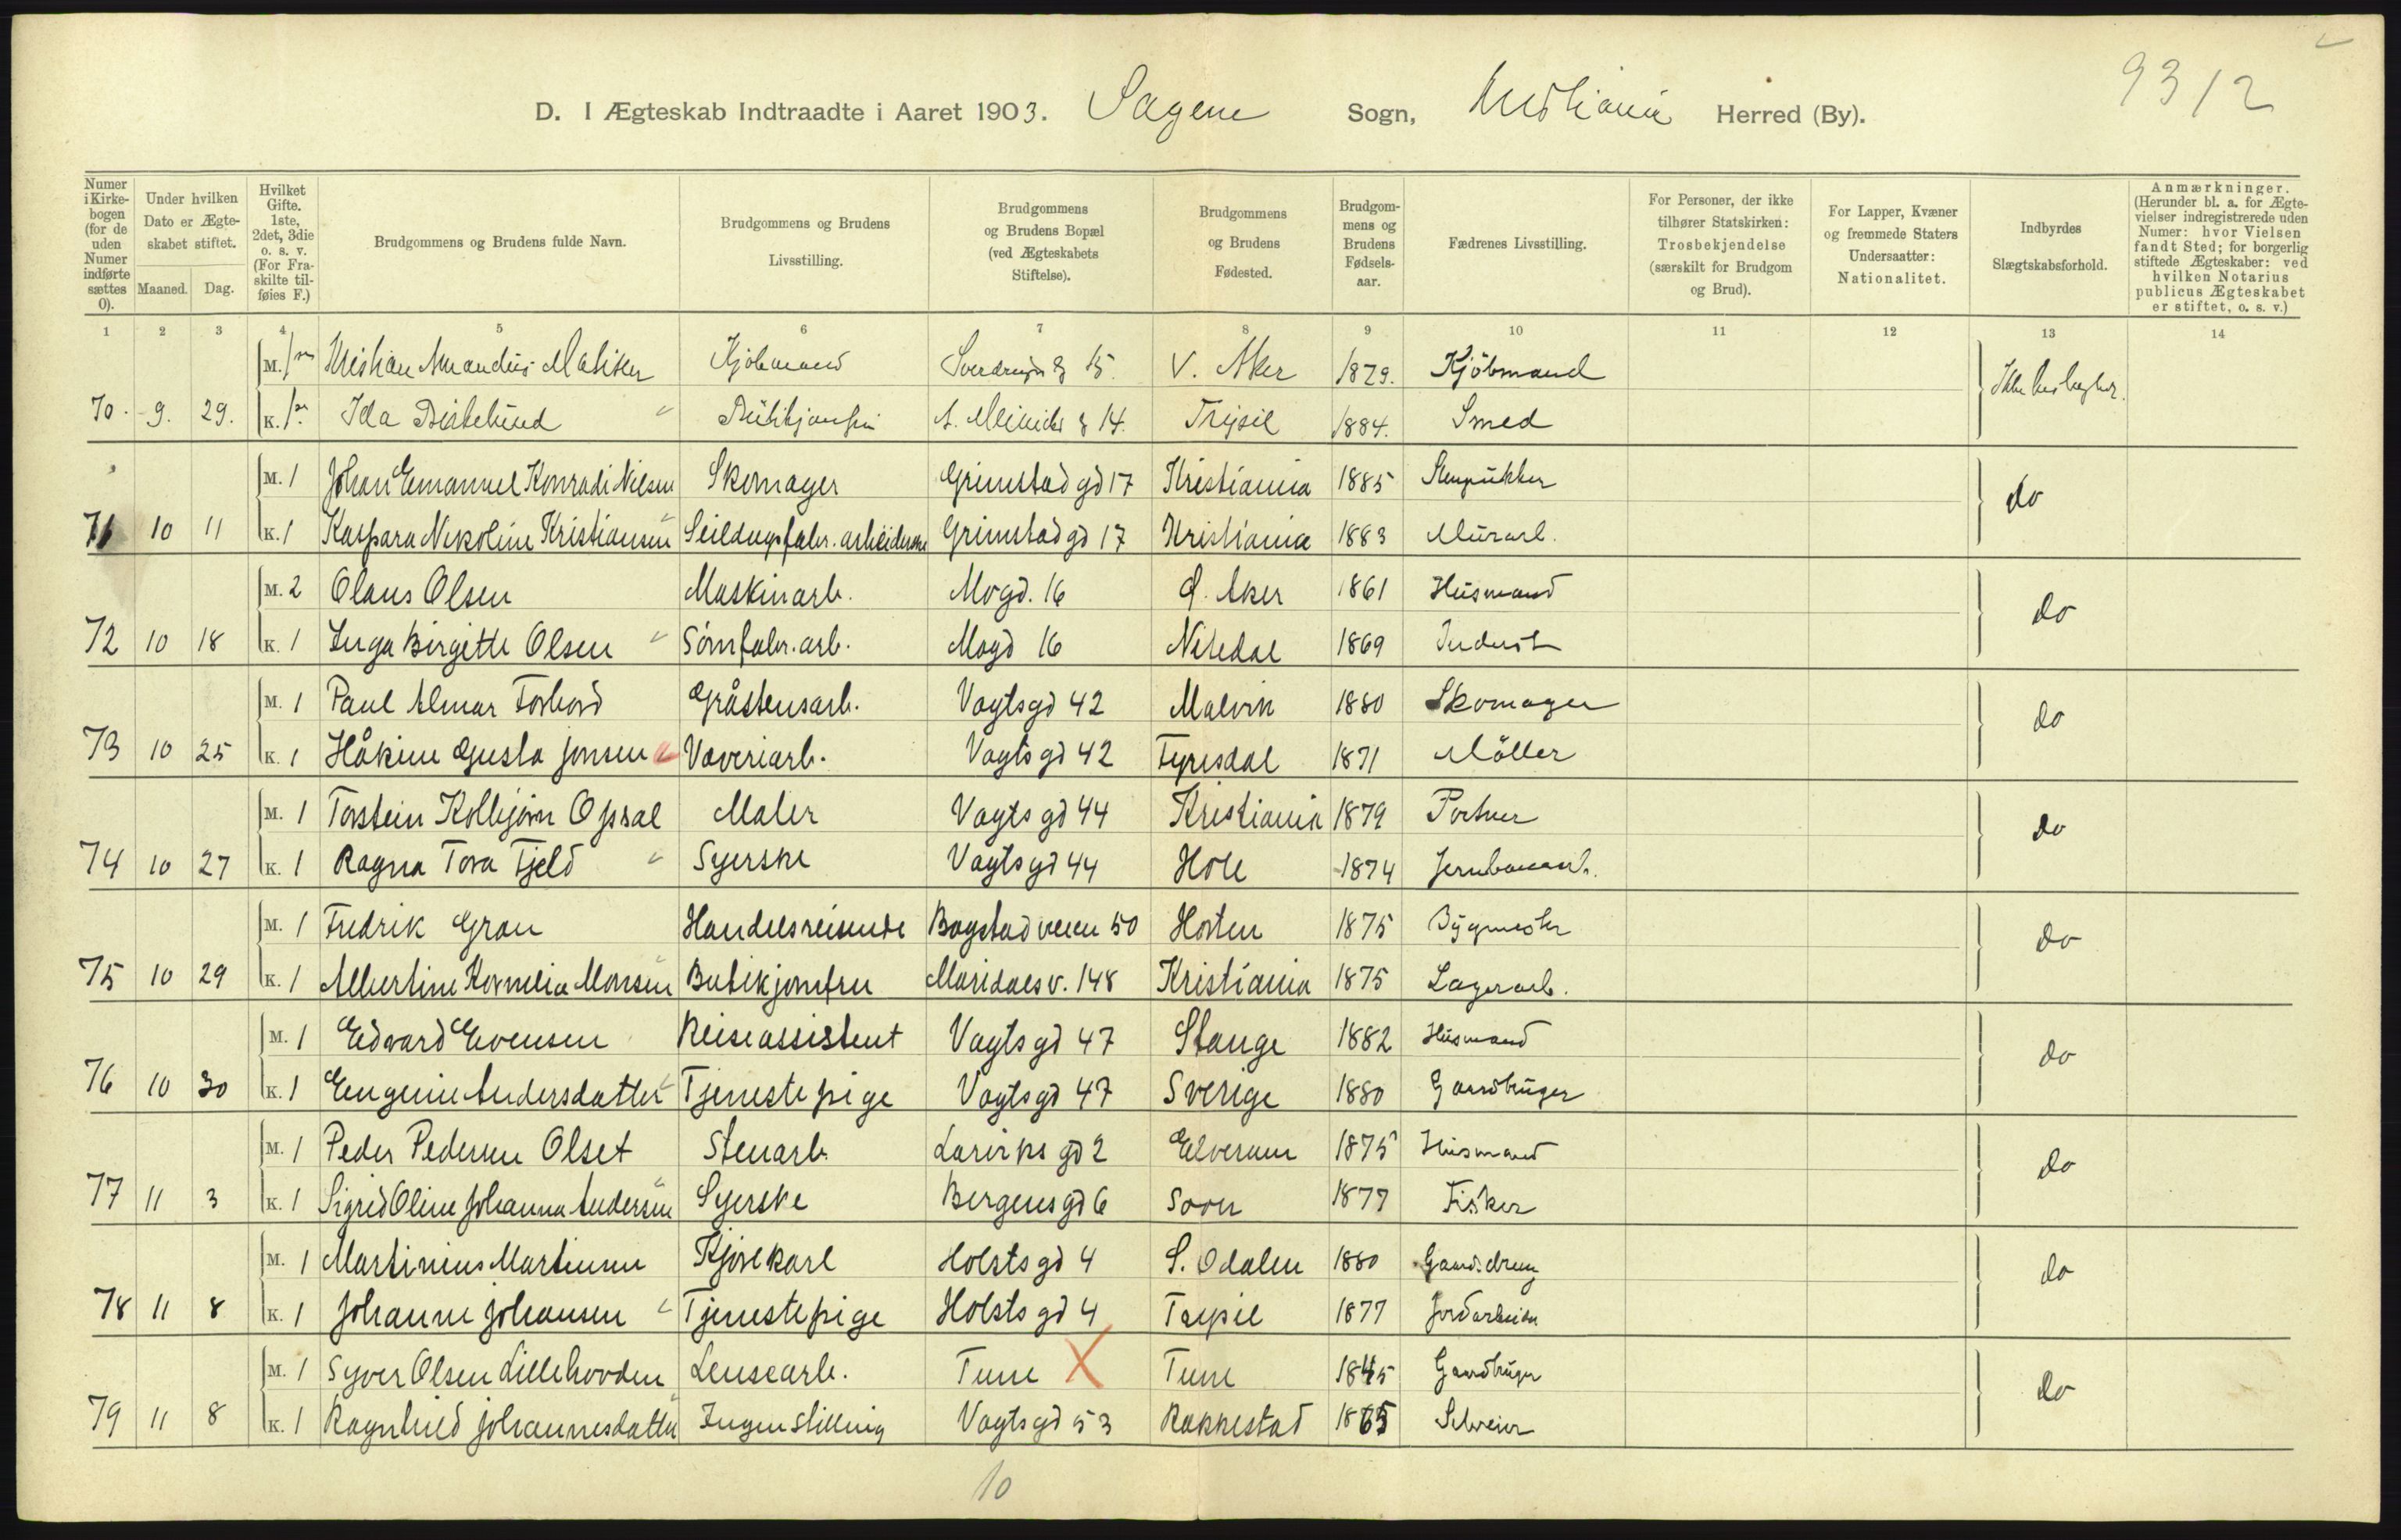 9312
D. I Ægteskab Indtraadte i Aaret 1903. Sagene Sogn, Kristiania Herred (By).
Numer i Kirkebogen (for de uden Numer indførte sættes 0). | Under hvilken Dato er Ægteskabet stiftet. Maaned. Dag. | Hvilket Gifte. 1ste, 2det, 3die o. s. v. (For Fraskilte tilføies F.) | Brudgommens og Brudens fulde Navn. | Brudgommens og Brudens Livsstilling. | Brudgommens og Brudens Bopæl (ved Ægteskabets Stiftelse). | Brudgommens og Brudens Fødested. | Brudgommens og Brudens Fødselsaar. | Fædrenes Livsstilling. | For Personer, der ikke tilhører Statskirken: Trosbekjendelse (særskilt for Brudgom og Brud). | For Lapper, Kvæner og fremmede Staters Undersaatter: Nationalitet. | Indbyrdes Slægtskabsforhold. | Anmærkninger. (Herunder bl. a. for Ægtevielser indregistrerede uden Numer: hvor Vielsen fandt Sted; for borgerlig stiftede Ægteskaber: ved hvilken Notarius publicus Ægteskabet er stiftet, o. s. v.)
1 2 3 4 5 6 7 8 9 10 11 12 13 14
M. Kristian Amandus Matisen Kjøbmand 15. V. Aker 1879. Kjöbmand Ikke beslægtet.
70. 9. 29. K. Ida 14. Trysil 1884. Smed
M. 1 Johan Emanuel Konradi Nilsen Skomager Grimstad gd 17 Kristiania 1885 Stenpukker do
71 10 11 K. 1 Kaspara Nikoline Kristiansen Seildugsfabr. arbeiderske Grimstad gd 17 Kristiania 1883 Murarb.
M. 2 Olaus Olsen Maskinarb. Mogd. 16 Ø. Aker 1861 Husmand do
72 10 18 K. 1 Inga Birgitte Olsen Sömfabr. arb. Mogd 16 Nitedal 1869 Inderst
M. 1 Paul Almar Forbord Gråstensarb. Vogtsgd 42 Malvik 1880 Skomager do
73 10 25 K. 1 Håkine Gusta Jonsen Væveriarb. Vogtsgd 42 Fyresdal 1871 Möller
M. 1 Torstein Kolbjørn Opsal Maler Vogtsgd 44 Kristiania 1879 Portner do
74 10 27 K. 1 Ragna Tora Fjeld Syerske Vogtsgd 44 Hole 1874 Jernbanearb.
M. 1 Fredrik Gran Handelsreisende Bogstadveien 50 Horten 1875 Bygmester do
75 10 29 K. 1 Albertine Kornelia Monsen Butikjomfru Maridalsv. 148 Kristiania 1875 Lagerarb.
M. 1 Edvard Evensen Reiseassistent Vogtsgd 47 Stange 1882 Husmand do
76 10 30 K. 1 Eugenie Andersdatter Tjenestepige Vogtsgd 47 Sverige 1880 Gaardbruger
M. 1 Peder Pedersen Olset Stenarb. Larviks gd 2 Elverum 1875 Husmand do
77 11 3 K. 1 Sigrid Oline Johanna Andersen Syerske Bergensgd 6 Soon 1877 Fisker
M. 1 Martinius Martinsen Kjørekarl Holstsgd 4 S. Odalen 1880 do
78 11 8 K. 1 Johanne Johansen Tjenestepige Holstsgd 4 1877 Jordarbeider
M. 1 Syver Olsen Lillehovden Lensearb. Tune X Tune 1845 Gaardbruger do
79 11 8 K. 1 Ragnhild Johannesdatter Ingen stilling Vogtsgd 53 Rakkestad 1865
10